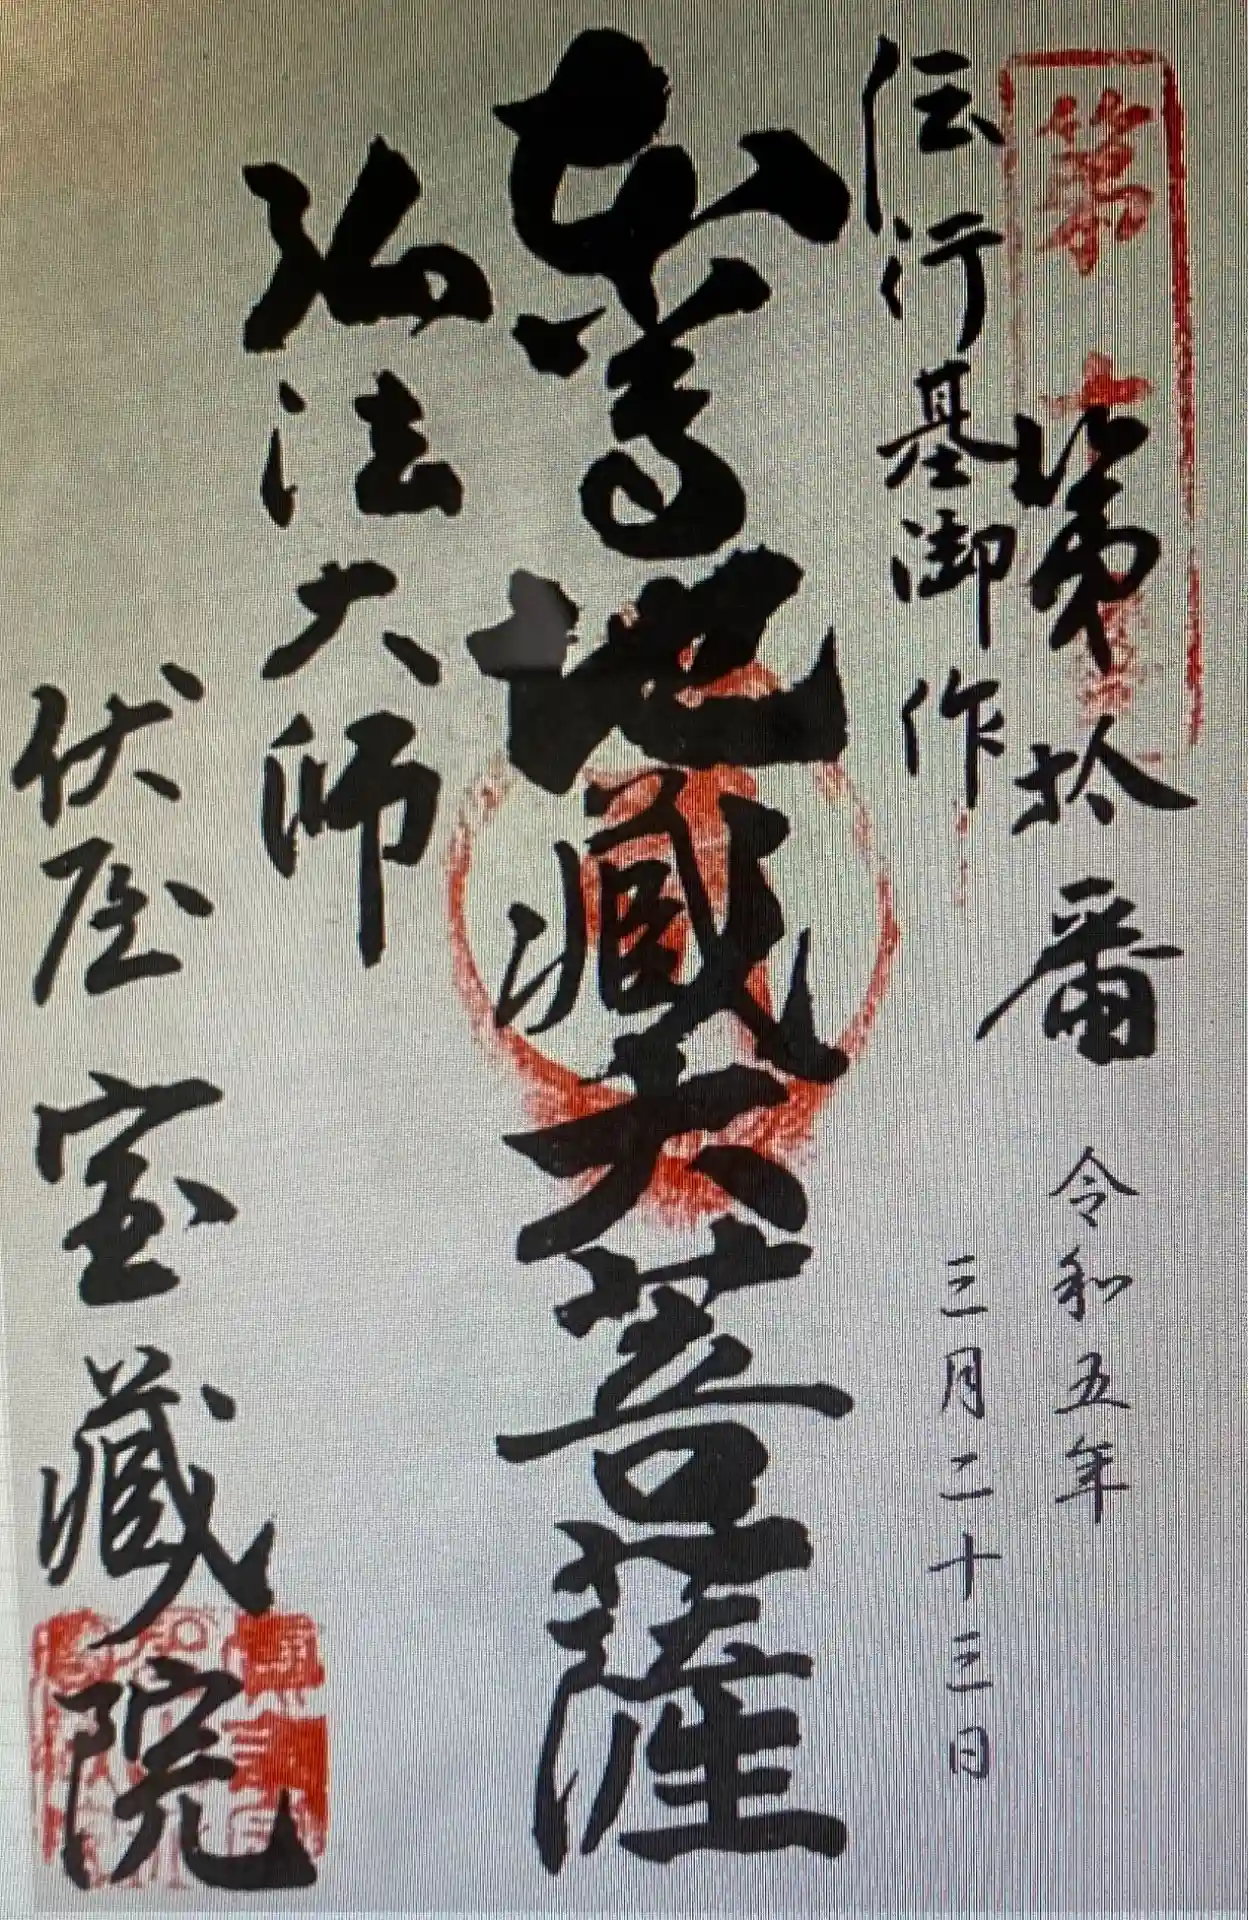 第十
第拾番
令和五年
三月二十三日
伝行基御作
本尊地蔵大菩薩
弘法大師
伏屋 宝蔵院